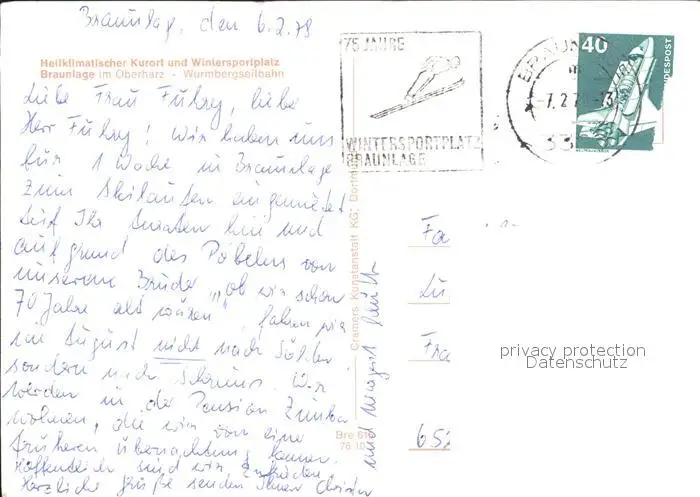 Braunlage, den 6.2.78
Heilklimatischer Kurort und Wintersportplatz
Braunlage im Oberharz - Wurmbergseilbahn
Liebe Frau Fuhry, liebe
Herr Fuhry! Wir haben uns
für 1 Woche in Braunlage
zum Skilaufen eingemietet.
Auf Ihr hin und
aufgrund des Pöbelns von
unserem Bruder "ob wir schon
70 Jahre alt wären", fahren wir
im August nicht nach Sölden
sondern nach Wir
werden in der Pension
wohnen, die wir von einer
früheren Übernachtung kennen.
Hoffentlich sind wir zufrieden.
Herzliche Grüße senden Ihnen Christa
und Margret
Cramers Kunstanstalt KG; Dortmund
Bre 61
76 10
75 JAHRE
WINTERSPORTPLATZ
BRAUNLAGE
BRAUN
-7.2.7 -13
33
40
DEUTSCHE BUNDESPOST
Fa
Lu
Fra
652
privacy protection
Datenschutz